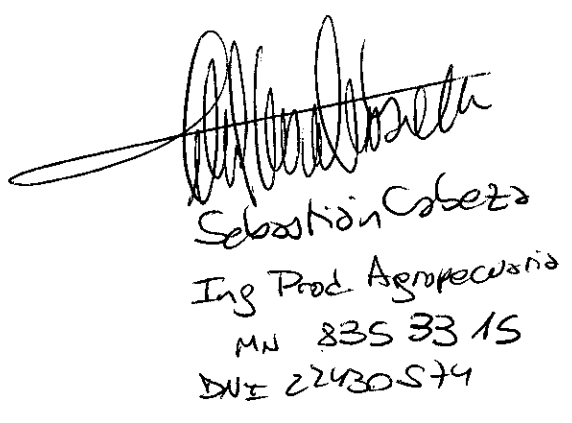 Sebastián Cabeza
Ing Prod. Agropecuaria
MN 835 33 15
DNI 22430574